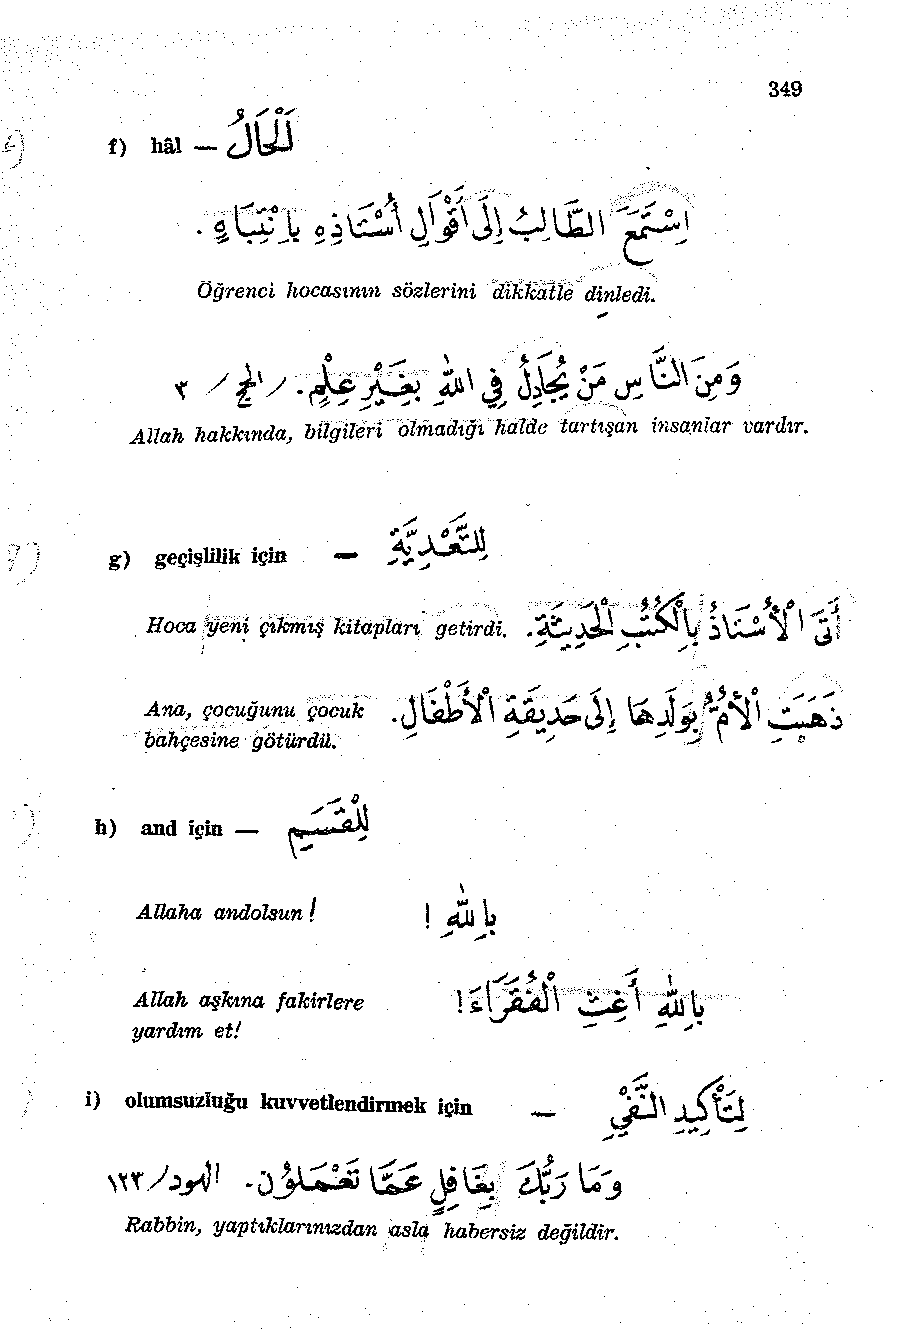 349
f) hâl — اَلْحَالُ
اِسْتَمَعَ الطَّالِبُ إِلَى أَقْوَالِ أُسْتَاذِهِ بِانْتِبَاهٍ .
Öğrenci hocasının sözlerini dikkatle dinledi.
وَمِنَ النَّاسِ مَنْ يُجَادِلُ فِي اللهِ بِغَيْرِ عِلْمٍ. / الحج / ٣
Allah hakkında, bilgileri olmadığı halde tartışan insanlar vardır.
g) geçişlilik için — لِلتَّعْدِيَةِ
Hoca yeni çıkmış kitapları getirdi. أَتَى الْأُسْتَاذُ بِالْكُتُبِ الْحَدِيثَةِ.
Ana, çocuğunu çocuk ذَهَبَتِ الْأُمُّ بِوَلَدِهَا إِلَى حَدِيقَةِ الْأَطْفَالِ.
bahçesine götürdü.
h) and için — لِلْقَسَمِ
Allaha andolsun ! بِاللهِ !
Allah aşkına fakirlere بِاللهِ أَغِثِ الْفُقَرَاءَ!
yardım et!
i) olumsuzluğu kuvvetlendirmek için — لِتَأْكِيدِ النَّفْيِ
وَمَا رَبُّكَ بِغَافِلٍ عَمَّا تَعْمَلُونَ. الهود/١٢٣
Rabbin, yaptıklarınızdan asla habersiz değildir.